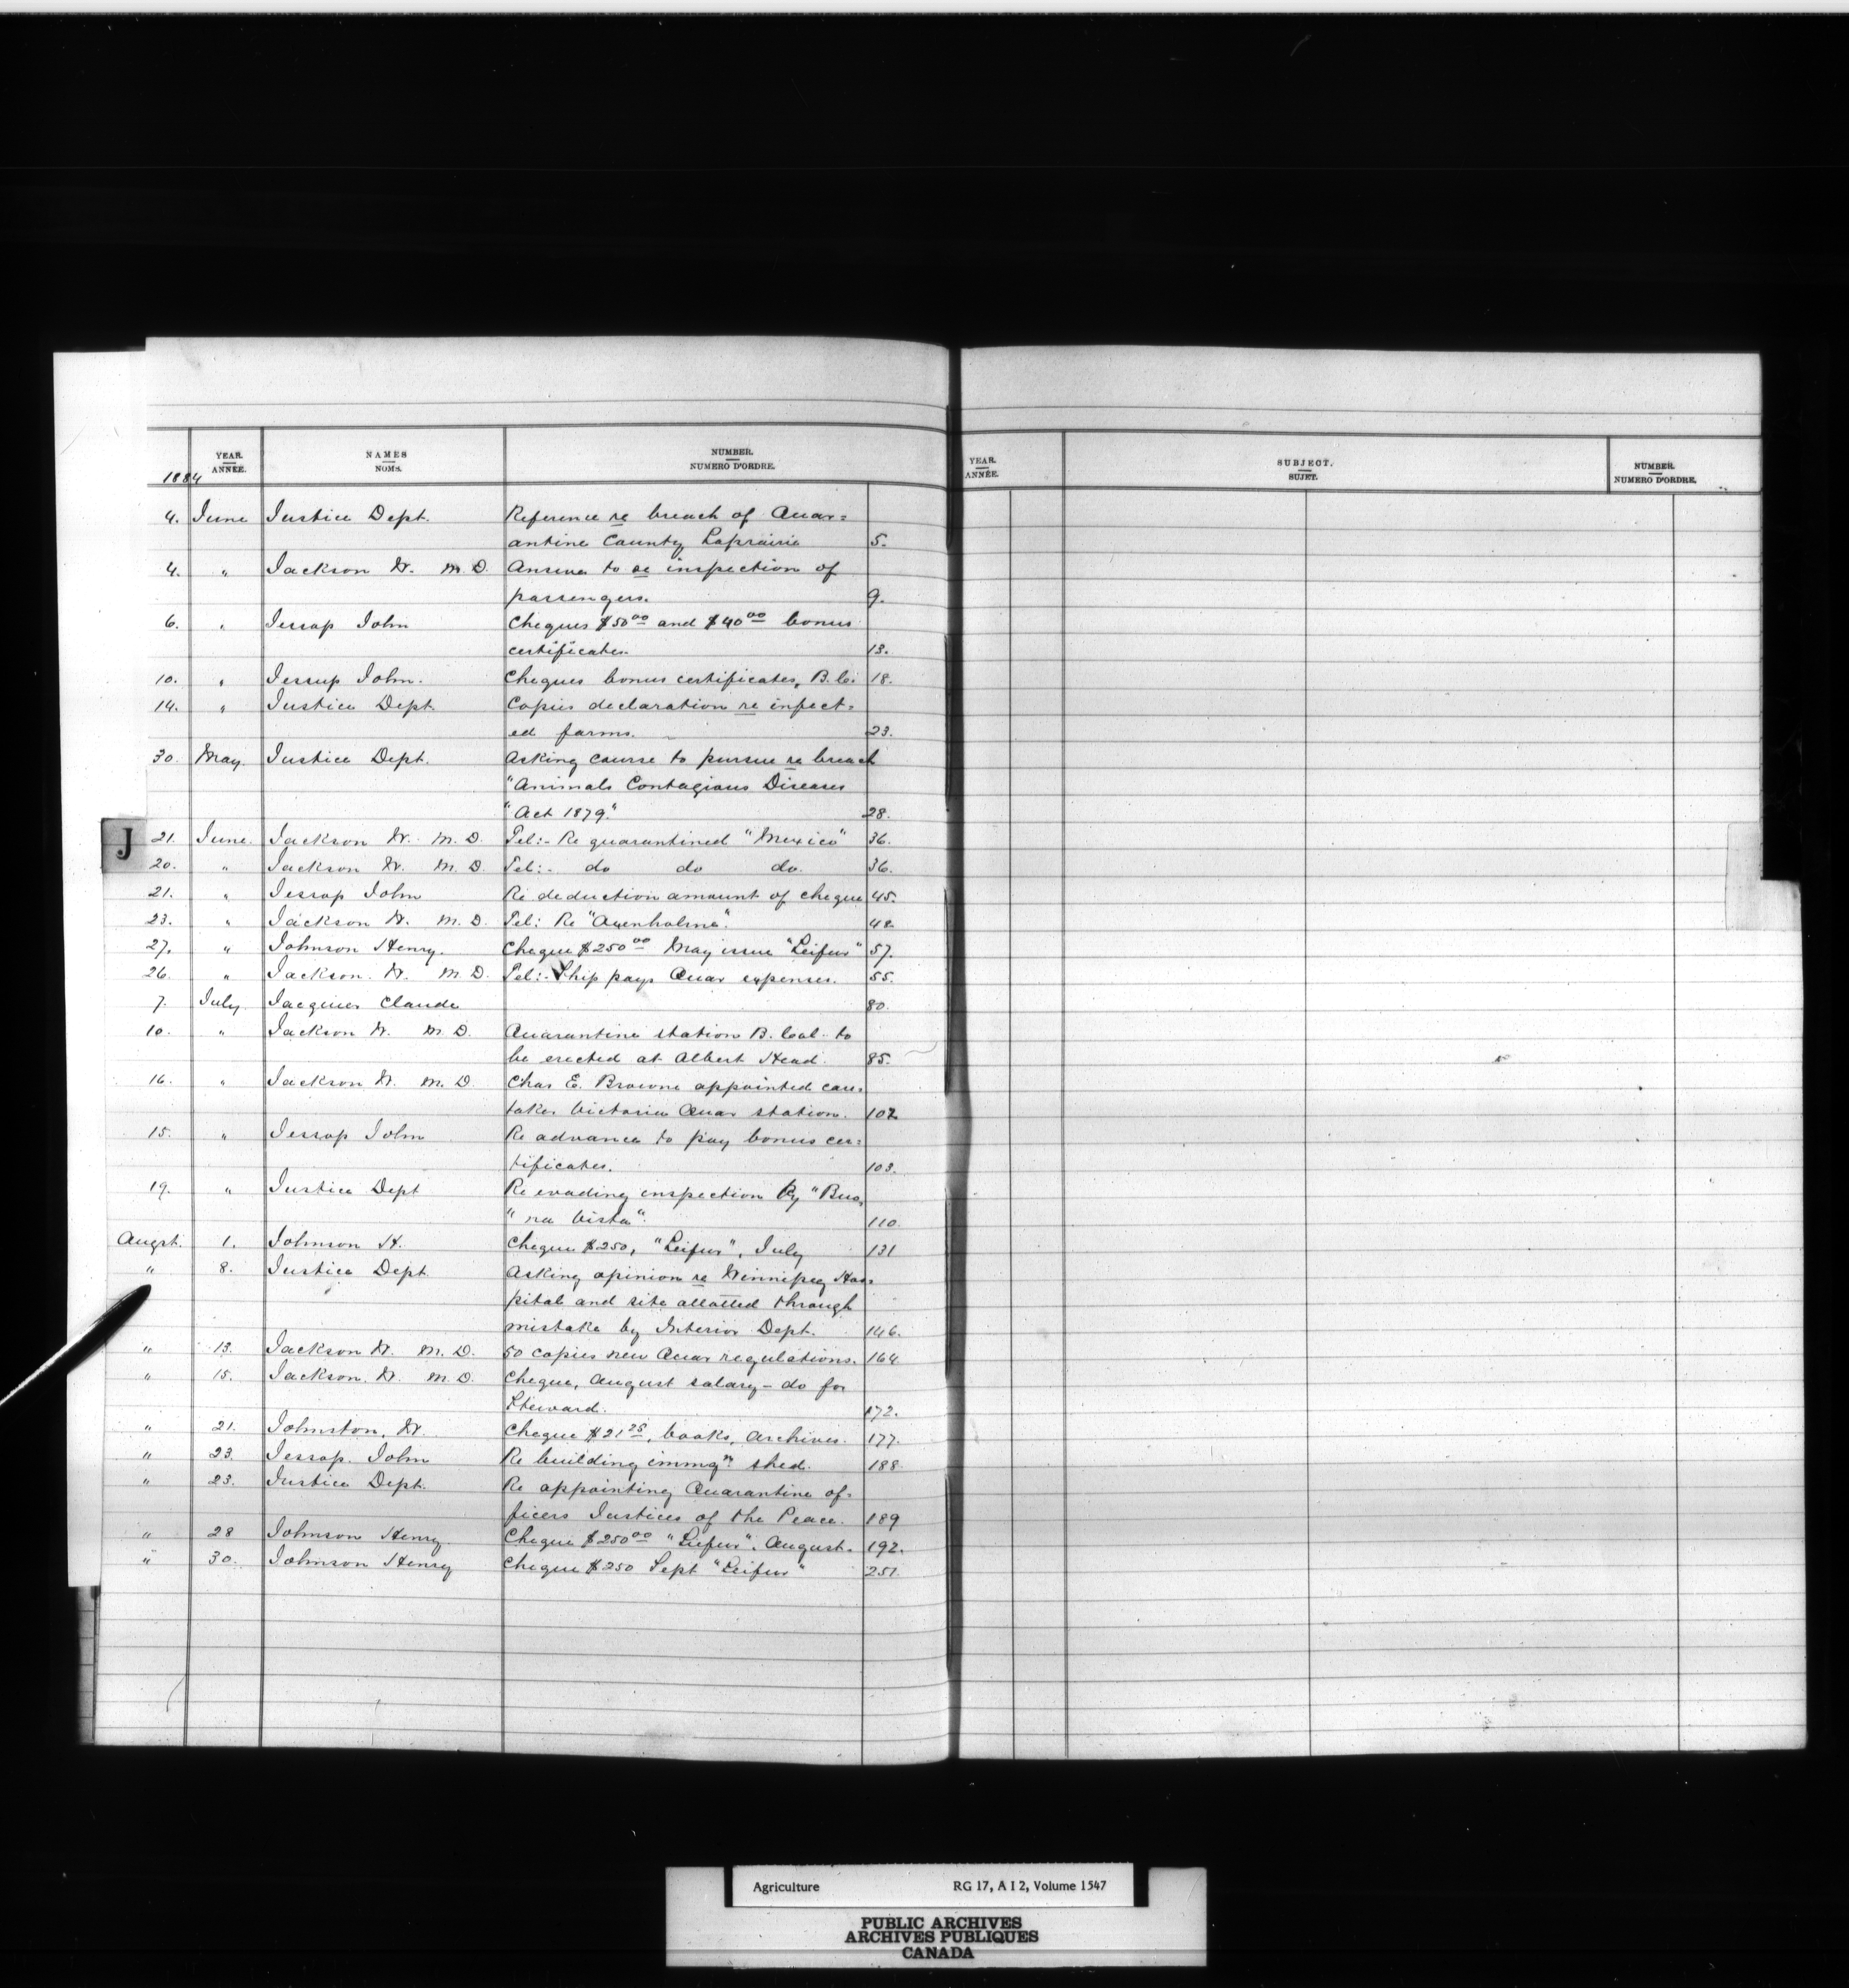 YEAR. NAMES NUMBER. YEAR. SUBJECT. NUMBER.
1884 ANNÉE. NOMS. NUMERO D'ORDRE. ANNÉE. SUJET. NUMERO D'ORDRE.
4. June Justice Dept. Reference re breach of Quar=
antine County Laprairie 5.
4. " Jackson W. M.D. Answer to re inspection of
passengers. 9.
6. " Jessop John Cheques $50 00 and $40 00 bonus
certificates. 13.
10. " Jessup John. Cheques bonus certificates, B.C. 18.
14. " Justice Dept. Copies declaration re infect=
ed farms. 23.
30. May. Justice Dept. Asking course to pursue re breach
"Animals Contagious Diseases
"Act 1879." 28.
J 21. June. Jackson W. M.D. Tel:- Re quarantined "Mexico" 36.
20. " Jackson W. M.D. Tel:- do do do. 36.
21. " Jessop John Re deduction amount of cheque 45.
23. " Jackson W. M.D. Tel: Re 48
27. " Johnson Henry. Cheque $250 00 May issue "Leifur" 57.
26. " Jackson. W. M.D. Tel:- Ship pays Quar expenses. 55.
7. July. Jacquies Claude 80.
10. " Jackson W. M.D. Quarantine station B. Col. to
be erected at Albert Head. 85.
16. " Jackson W. M.D. Chas E. Browne appointed care=
taker Victoria Quar station. 102
15. " Jessop John Re advance to pay bonus cer=
tificates. 103.
19. " Justice Dept Re evading inspection by "Bue=
"na Vista". 110.
Augst. 1. Johnson H. Cheque $250, "Leifur", July 131
" 8. Justice Dept. Asking opinion re Winnipeg Hos=
pital and site allotted through
mistake by Interior Dept. 146.
" 13. Jackson W. M.D. 50 copies new Quar regulations. 164
" 15. Jackson. W. M.D. Cheque, August salary - do for
Steward. 172.
" 21. Johnston, W. Cheque $21 25, books, Archives. 177.
" 23. Jessop. John Re building immgn. shed. 188.
" 23. Justice Dept. Re appointing Quarantine of=
ficers Justices of the Peace. 189
" 28 Johnson Henry. Cheque $250 00 "Leifur". August. 192.
" 30. Johnson Henry Cheque $250 Sept "Leifur" 251.
Agriculture RG 17, A I 2, Volume 1547
PUBLIC ARCHIVES
ARCHIVES PUBLIQUES
CANADA